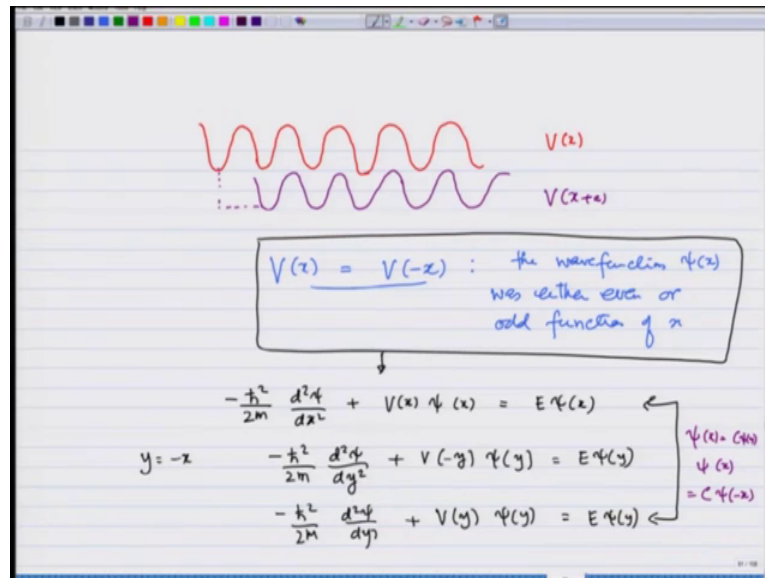 V(x)
V(x+a)
V(x) = V(-x) : the wavefunction ψ(x)
was either even or
odd function of x
-ħ²/2m d²ψ/dx² + V(x) ψ(x) = Eψ(x)
ψ(x) = Cψ(y)
y = -x -ħ²/2m d²ψ/dy² + V(-y) ψ(y) = Eψ(y)
ψ(x)
= Cψ(-x)
-ħ²/2m d²ψ/dy² + V(y) ψ(y) = Eψ(y)